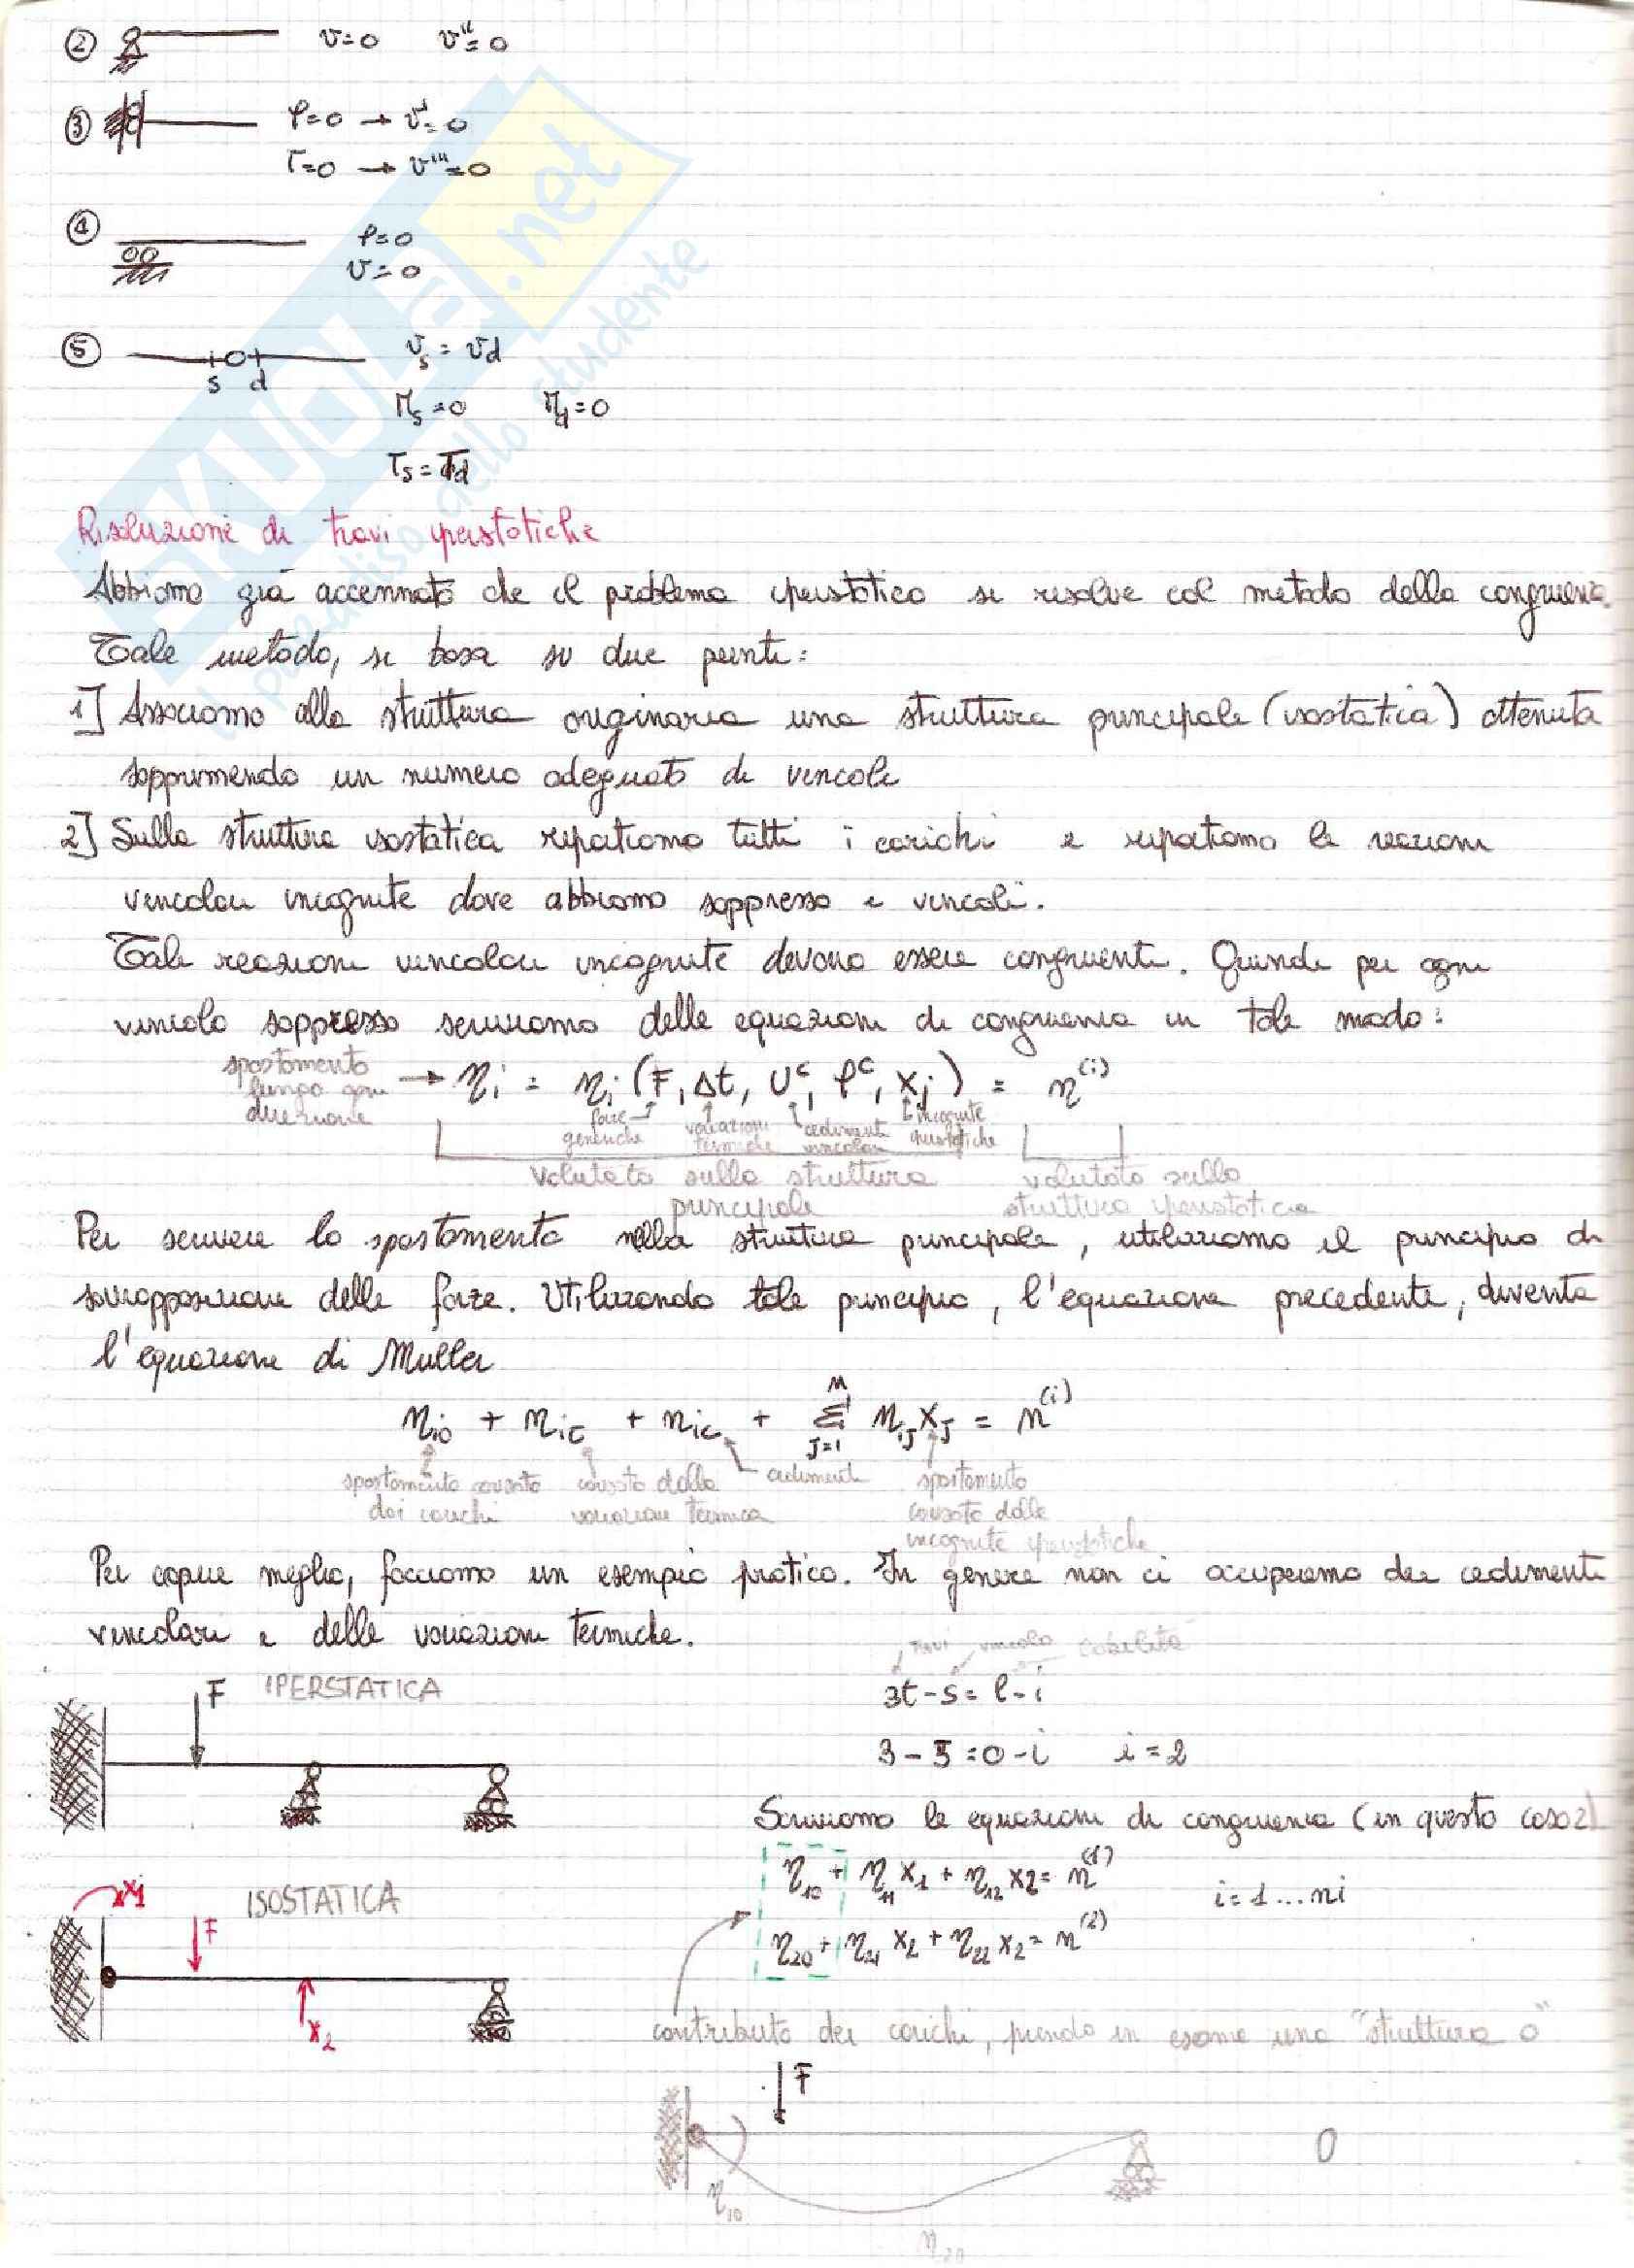 ② v=0 v''=0
③ φ=0 → v'=0
T=0 → v'''=0
④ φ=0
v=0
⑤ v_s = v_d
s d
M_s=0 M_d=0
T_s = T_d
Risoluzione di travi iperstatiche
Abbiamo già accennato che il problema iperstatico si risolve col metodo della congruenza.
Tale metodo, si basa su due punti:
1] Associamo alla struttura originaria una struttura principale (isostatica) ottenuta
sopprimendo un numero adeguato di vincoli
2] Sulla struttura isostatica riportiamo tutti i carichi e riportiamo le reazioni
vincolari incognite dove abbiamo soppresso i vincoli.
Tali reazioni vincolari incognite devono essere congruenti. Quindi per ogni
vincolo soppresso scriviamo delle equazioni di congruenza in tale modo:
spostamento
lungo ogni
direzione
→ η_i = η_i (F, Δt, U^c, φ^c, X_j) = η^(i)
forze generiche
variazioni termiche
cedimenti vincolari
incognite iperstatiche
valutato sulla struttura
principale
valutato sulla
struttura iperstatica
Per scrivere lo spostamento nella struttura principale, utilizziamo il principio di
sovrapposizione delle forze. Utilizzando tale principio, l'equazione precedente, diventa
l'equazione di Muller
η_i0 + η_it + η_ic + Σ η_ij X_j = η^(i)
n
j=1
spostamento causato
dai carichi
causato dalla
variazione termica
cedimenti
spostamento
causato dalle
incognite iperstatiche
Per capire meglio, facciamo un esempio pratico. In genere non ci occuperemo dei cedimenti
vincolari e delle variazioni termiche.
travi vincolo labilità
3t-s=l-i
F IPERSTATICA
3-5=0-i i=2
Scriviamo le equazioni di congruenza (in questo caso 2)
η_10 + η_11 X_1 + η_12 X_2 = η^(1)
i=1...ni
η_20 + η_21 X_2 + η_22 X_2 = η^(2)
X_1 ISOSTATICA
F
X_2
contributo dei carichi, prendo in esame una "struttura 0"
F
0
η_10
η_20
SKUOLA.net
il paradiso dello studente